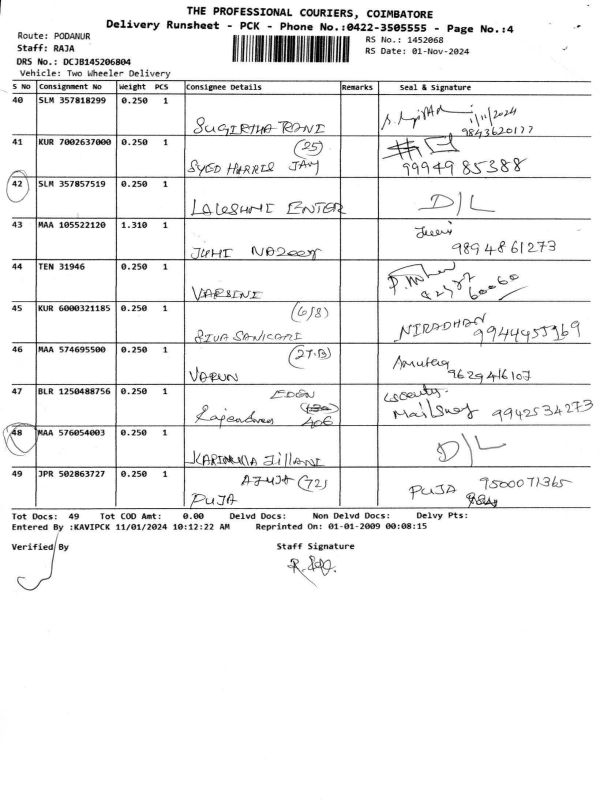 THE PROFESSIONAL COURIERS, COIMBATORE
Delivery Runsheet - PCK - Phone No.:0422-3505555 - Page No.:4
Route: PODANUR
RS No.: 1452068
Staff: RAJA
RS Date: 01-Nov-2024
DRS No.: DCJB145206804
Vehicle: Two Wheeler Delivery
S No Consignment No Weight PCS Consignee Details Remarks Seal & Signature
40 SLM 357818299 0.250 1
SUGIRTHA RANI 1/11/2024
9843620177
41 KUR 7002637000 0.250 1 (25)
SYED HARRIS JAY 9994985388
42 SLM 357857519 0.250 1
LAKSHMI ENTER D/L
43 MAA 105522120 1.310 1
JUHI NAZEER 9894861273
44 TEN 31946 0.250 1
VARSINI 60060
45 KUR 6000321185 0.250 1 (6/8)
SIVA SANKARI NIRADHAN 9944955169
46 MAA 574695500 0.250 1 (27.B)
VARUN 9629416107
47 BLR 1250488756 0.250 1 EDEN
406 9942534273
48 MAA 576054003 0.250 1
JILLANI D/L
49 JPR 502863727 0.250 1 (72)
PUJA PUJA 9500071365
Tot Docs: 49 Tot COD Amt: 0.00 Delvd Docs: Non Delvd Docs: Delvy Pts:
Entered By :KAVIPCK 11/01/2024 10:12:22 AM Reprinted On: 01-01-2009 00:08:15
Verified By Staff Signature